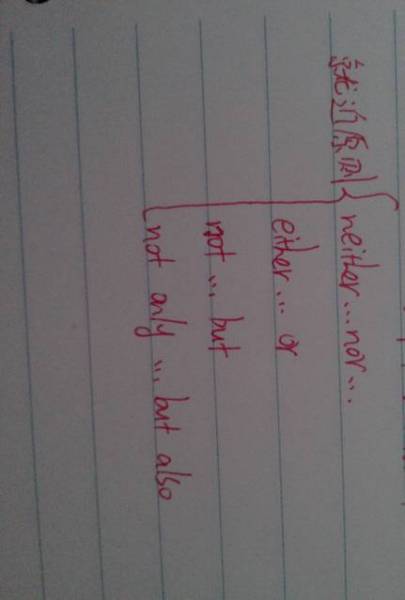 就近原则{ neither...nor...
either... or
not ... but
not only ... but also